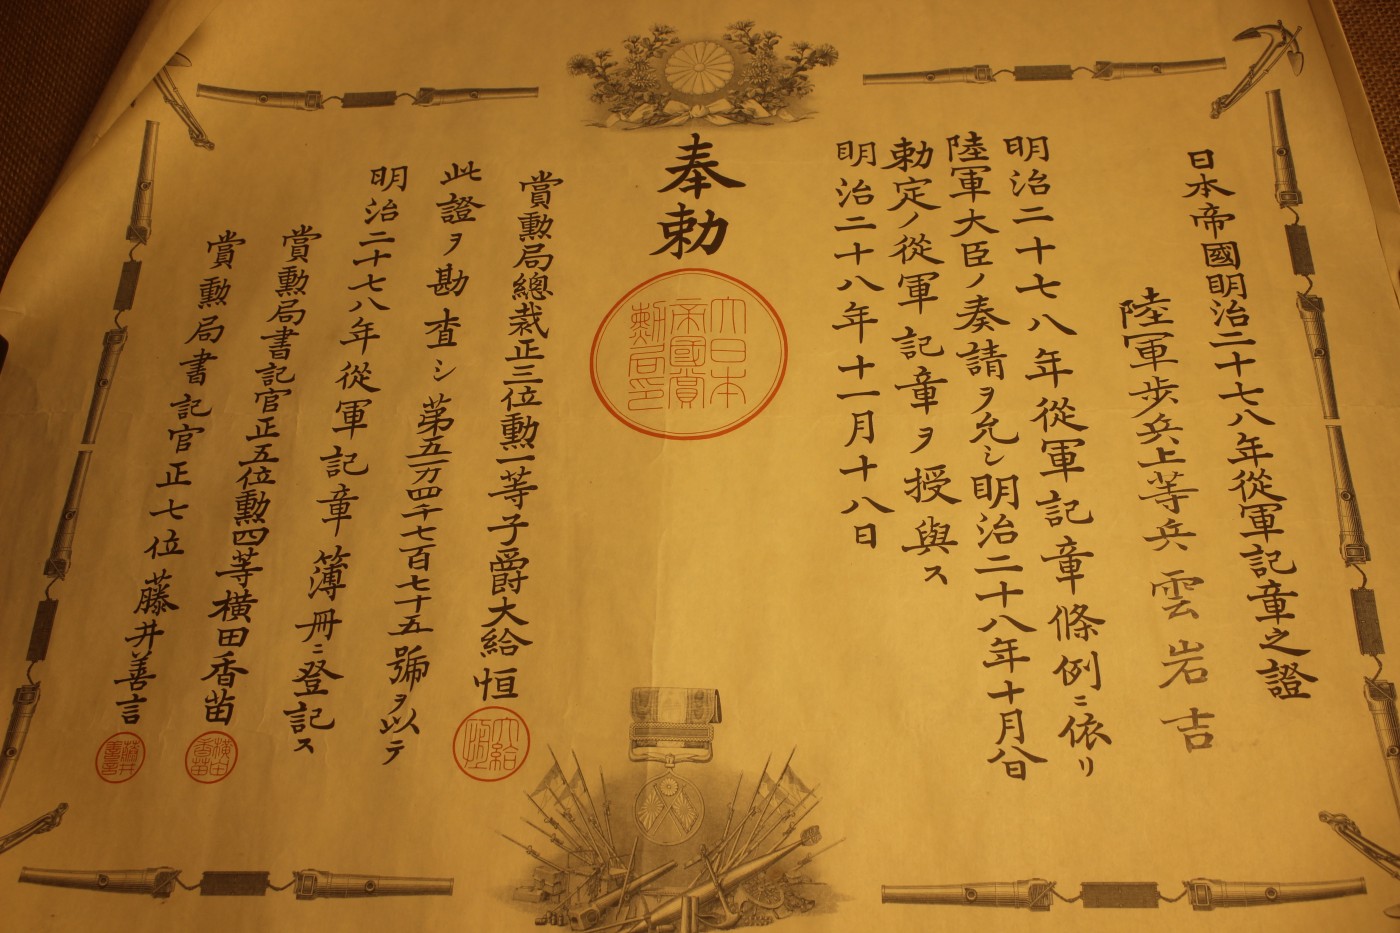 日本帝國明治二十七八年從軍記章之證
陸軍歩兵上等兵雲岩吉
明治二十七八年從軍記章條例ニ依リ
陸軍大臣ノ奏請ヲ允シ明治二十八年十月八日
勅定ノ從軍記章ヲ授與ス
明治二十八年十一月十八日
奉勅
大日本
帝國賞
勲局印
賞勲局總裁正三位勲一等子爵大給恒
大給
恒
此證ヲ勘査シ第五万四千七百七十五號ヲ以テ
明治二十七八年從軍記章簿冊ニ登記ス
賞勲局書記官正五位勲四等横田香苗
横田
香苗
賞勲局書記官正七位藤井善言
藤井
善言